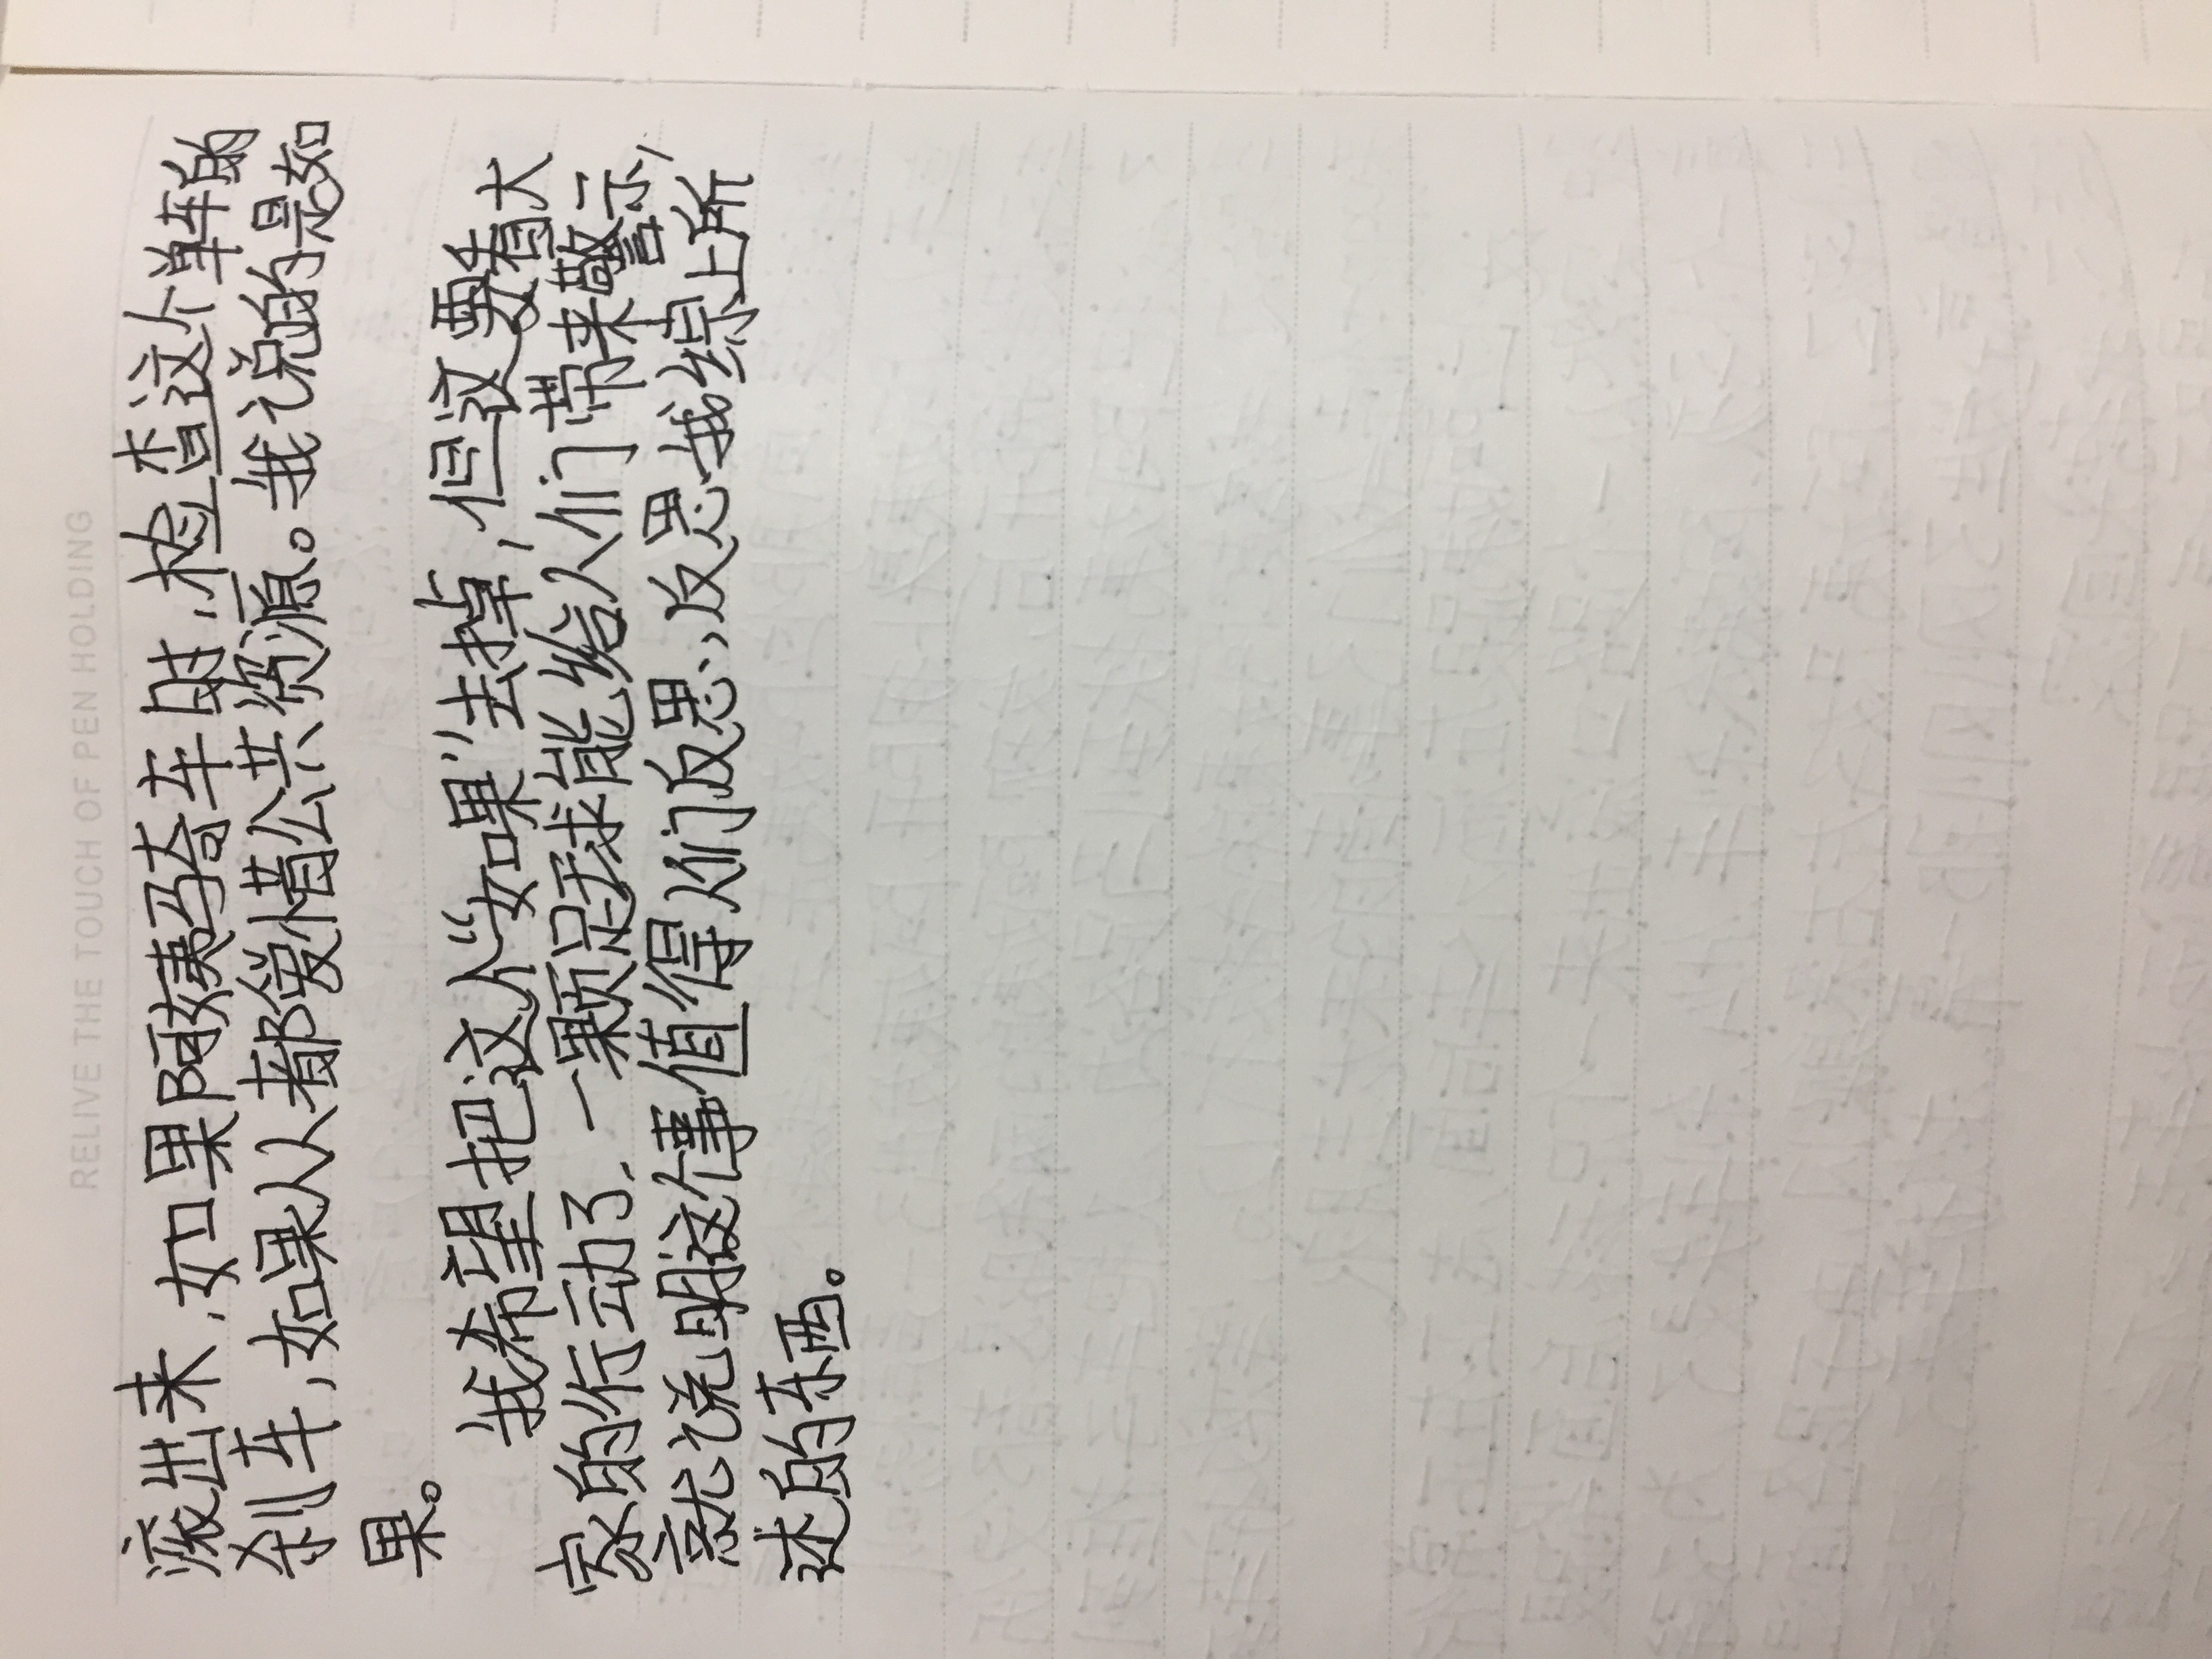 RELIVE THE TOUCH OF PEN HOLDING
滚出来，如果阿姨骑车时，检查这个单车的
刹车，如果人人都爱惜公共资源。我说的是如
果。
我希望把这个“如果”去掉，但这要看大
家的行动了，一颗足球能给人们带来警示，
就说明这件事值得人们反思，反思我综上所
述的东西。